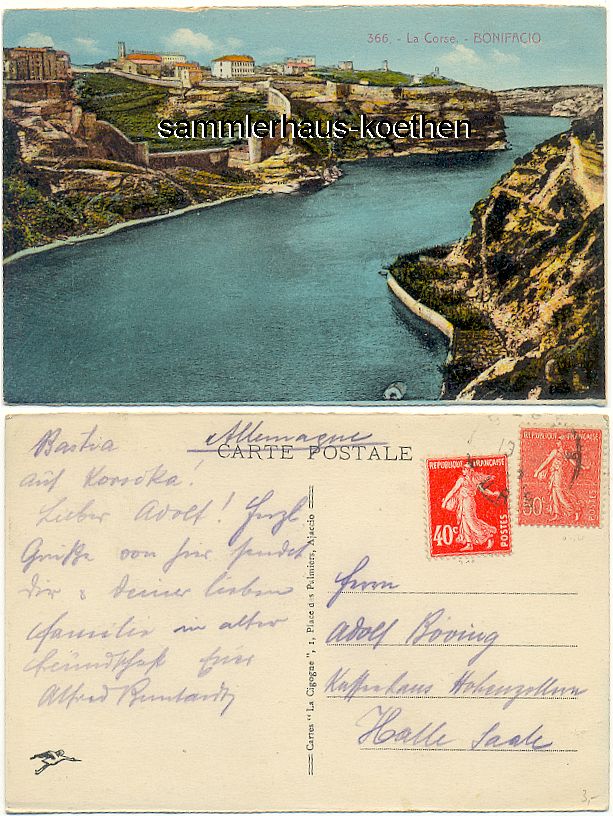 366. - La Corse. - BONIFACIO
sammlerhaus-koethen
Allemagne
CARTE POSTALE
Bastia
auf Korsika!
Lieber Adolf! Herzl
Grüße von hier sendet
Dir & Deiner lieben
Familie in alter
Freundschaft Euer
Alfred
Cartes "La Cigogne", 1, Place des Palmiers, Ajaccio
REPUBLIQUE FRANÇAISE
40c
POSTES
REPUBLIQUE FRANÇAISE
50c
POSTES
Herrn
Adolf Böving
Kaffeehaus Hohenzollern
Halle Saale
3,-